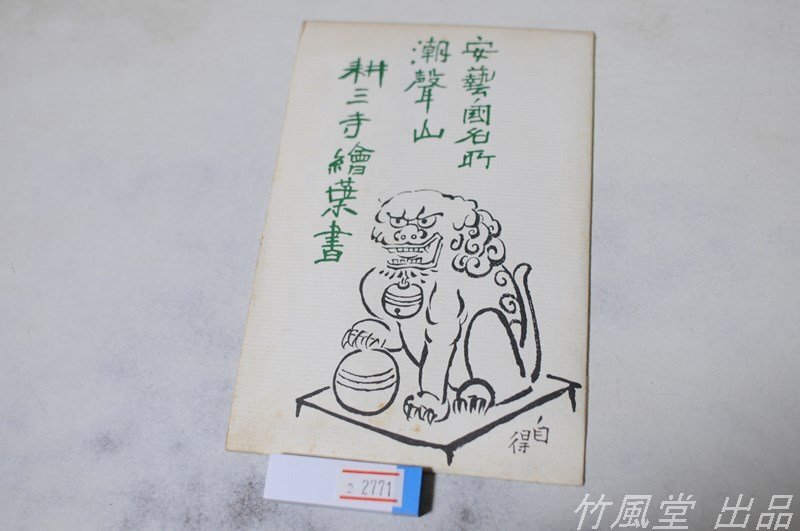 安藝國名所
潮聲山
耕三寺繪葉書
自得
2 2771
竹風堂 出品